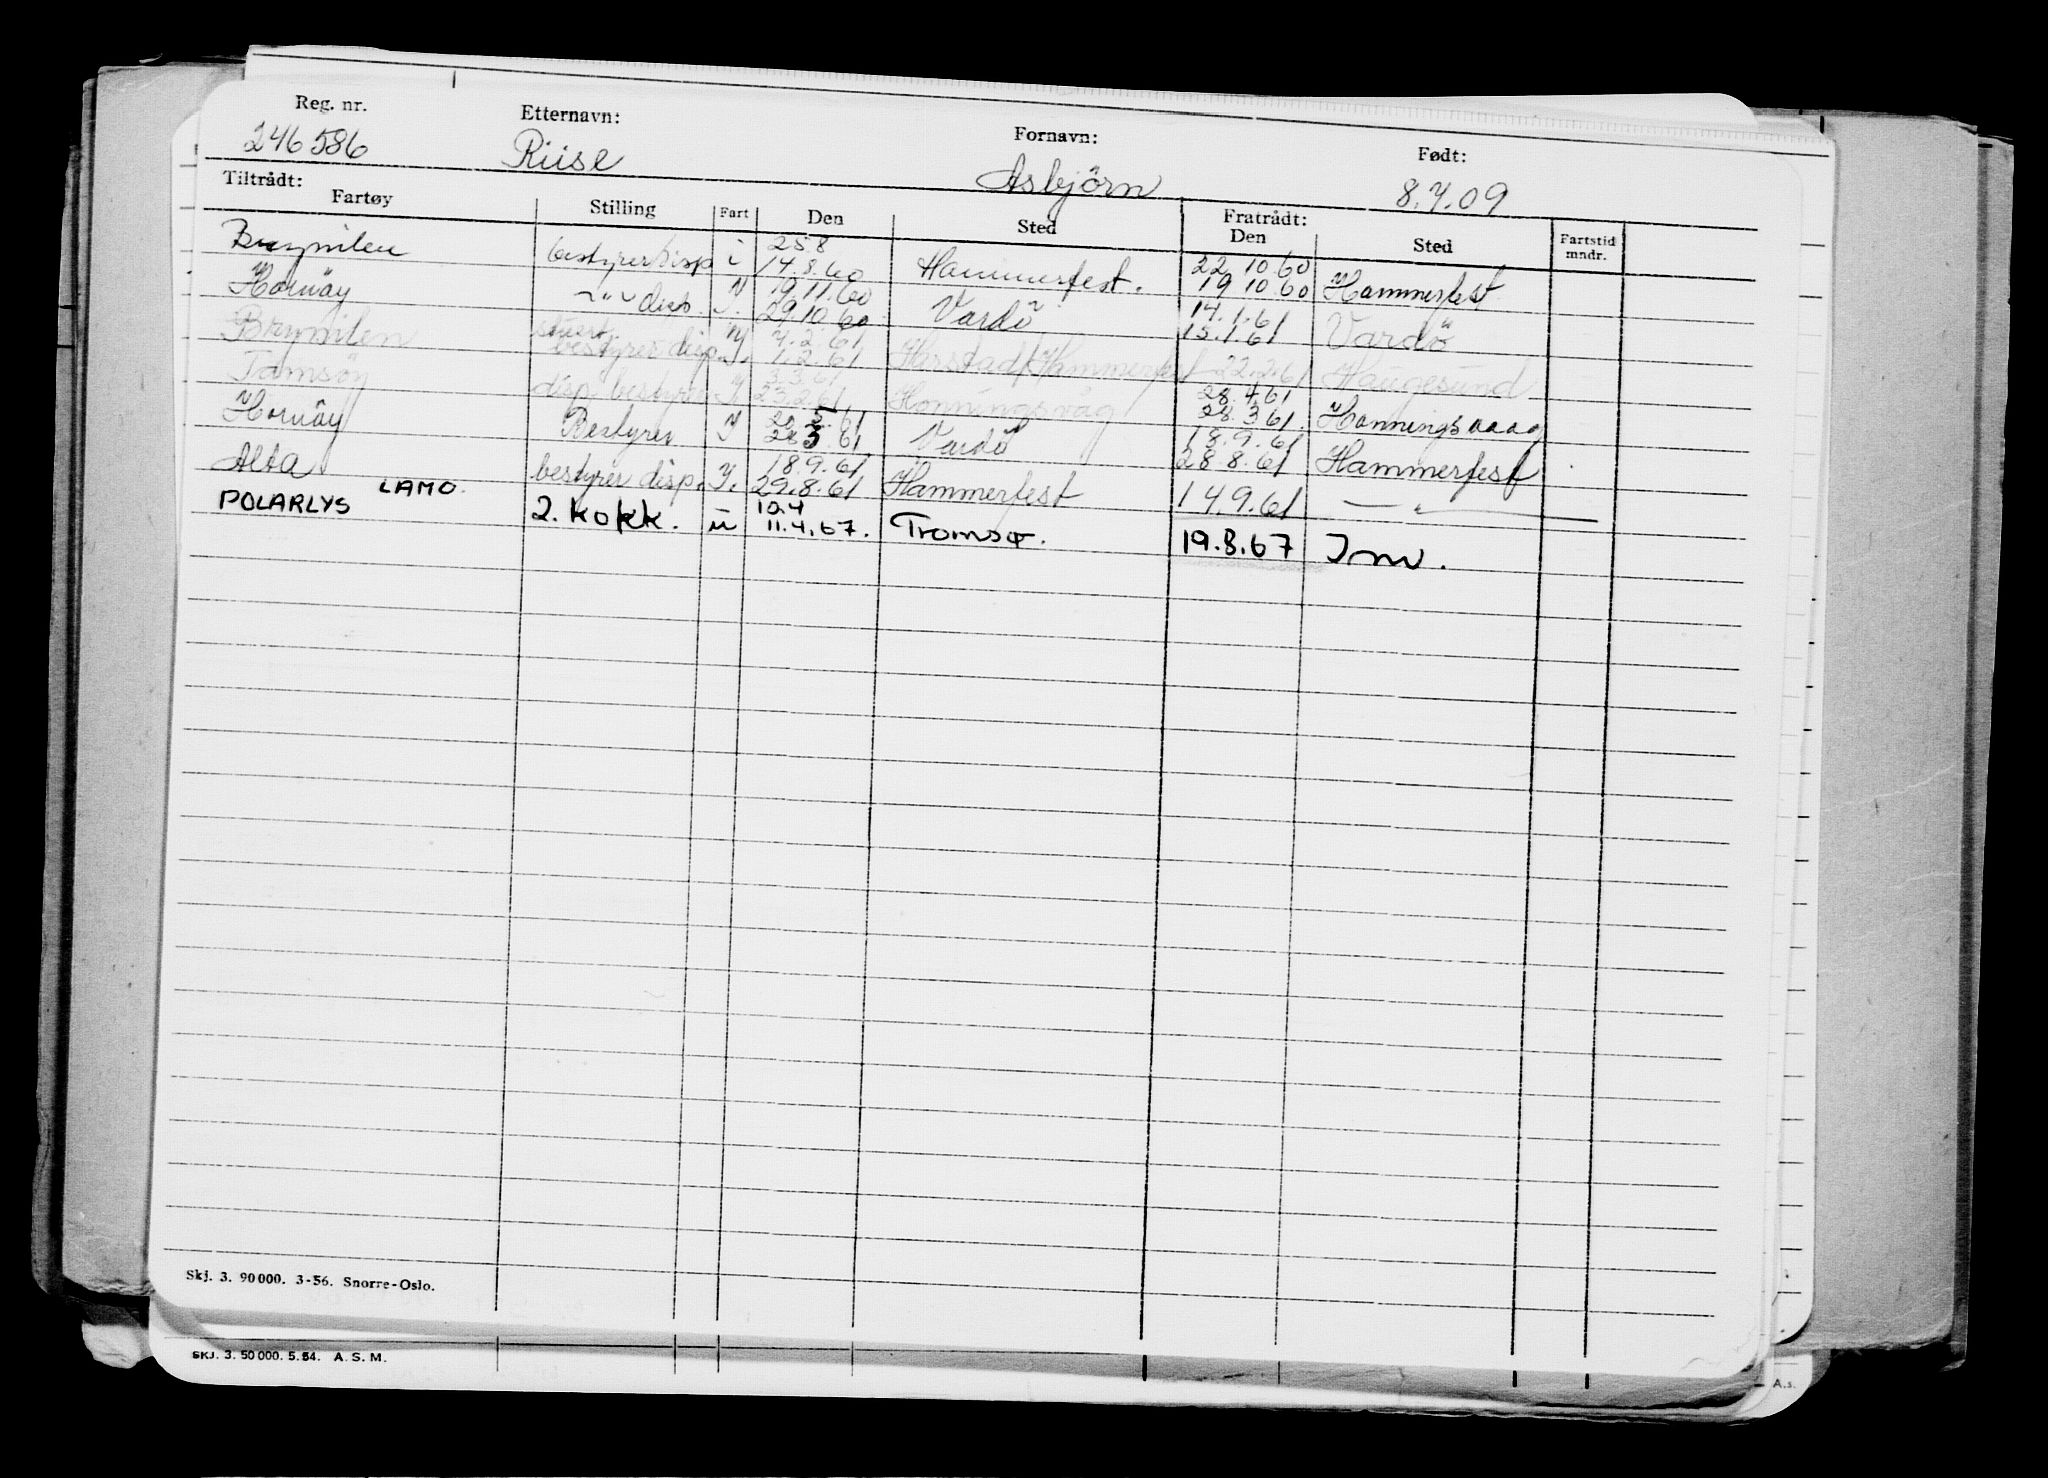 Reg. nr. Etternavn: Fornavn: Født:
246586 Riise Asbjörn 8.4.09
Tiltrådt: Fratrådt:
Fartøy Stilling Fart Den Sted Den Sted Fartstid mndr.
Brynilen bestyrer disp i 25 8 14.8.60 Hammerfest. 22.10.60 19 10.60 Hammerfest
Hornöy -"- disp. 19.11.60 29.10.60 Vardö 14.1.61 15.1.61 Vardö
Brynilen stuert bestyrer disp. 4.2.61 1.2.61 Harstad/Hammerfest 22.2.61 Haugesund
Tamsöy disp bestyrer 3.3.61 23.2.61 Honningsvåg 28.4.61 28.3.61 Honningsvaag
Hornöy Bestyrer 20.5.61 Vardö 18.9.61 28.8.61 Hammerfest
Alta bestyrer disp. 18.9.61 29.8.61 Hammerfest 14.9.61 — " —
POLARLYS LAMO. 2. kokk. u 10.4 11.4.67. Tromsø. 19.8.67 Inv.
Skj. 3. 90000. 3-56. Snorre-Oslo.
SKJ. 3. 50 000. 5.54. A. S. M.
A.s.